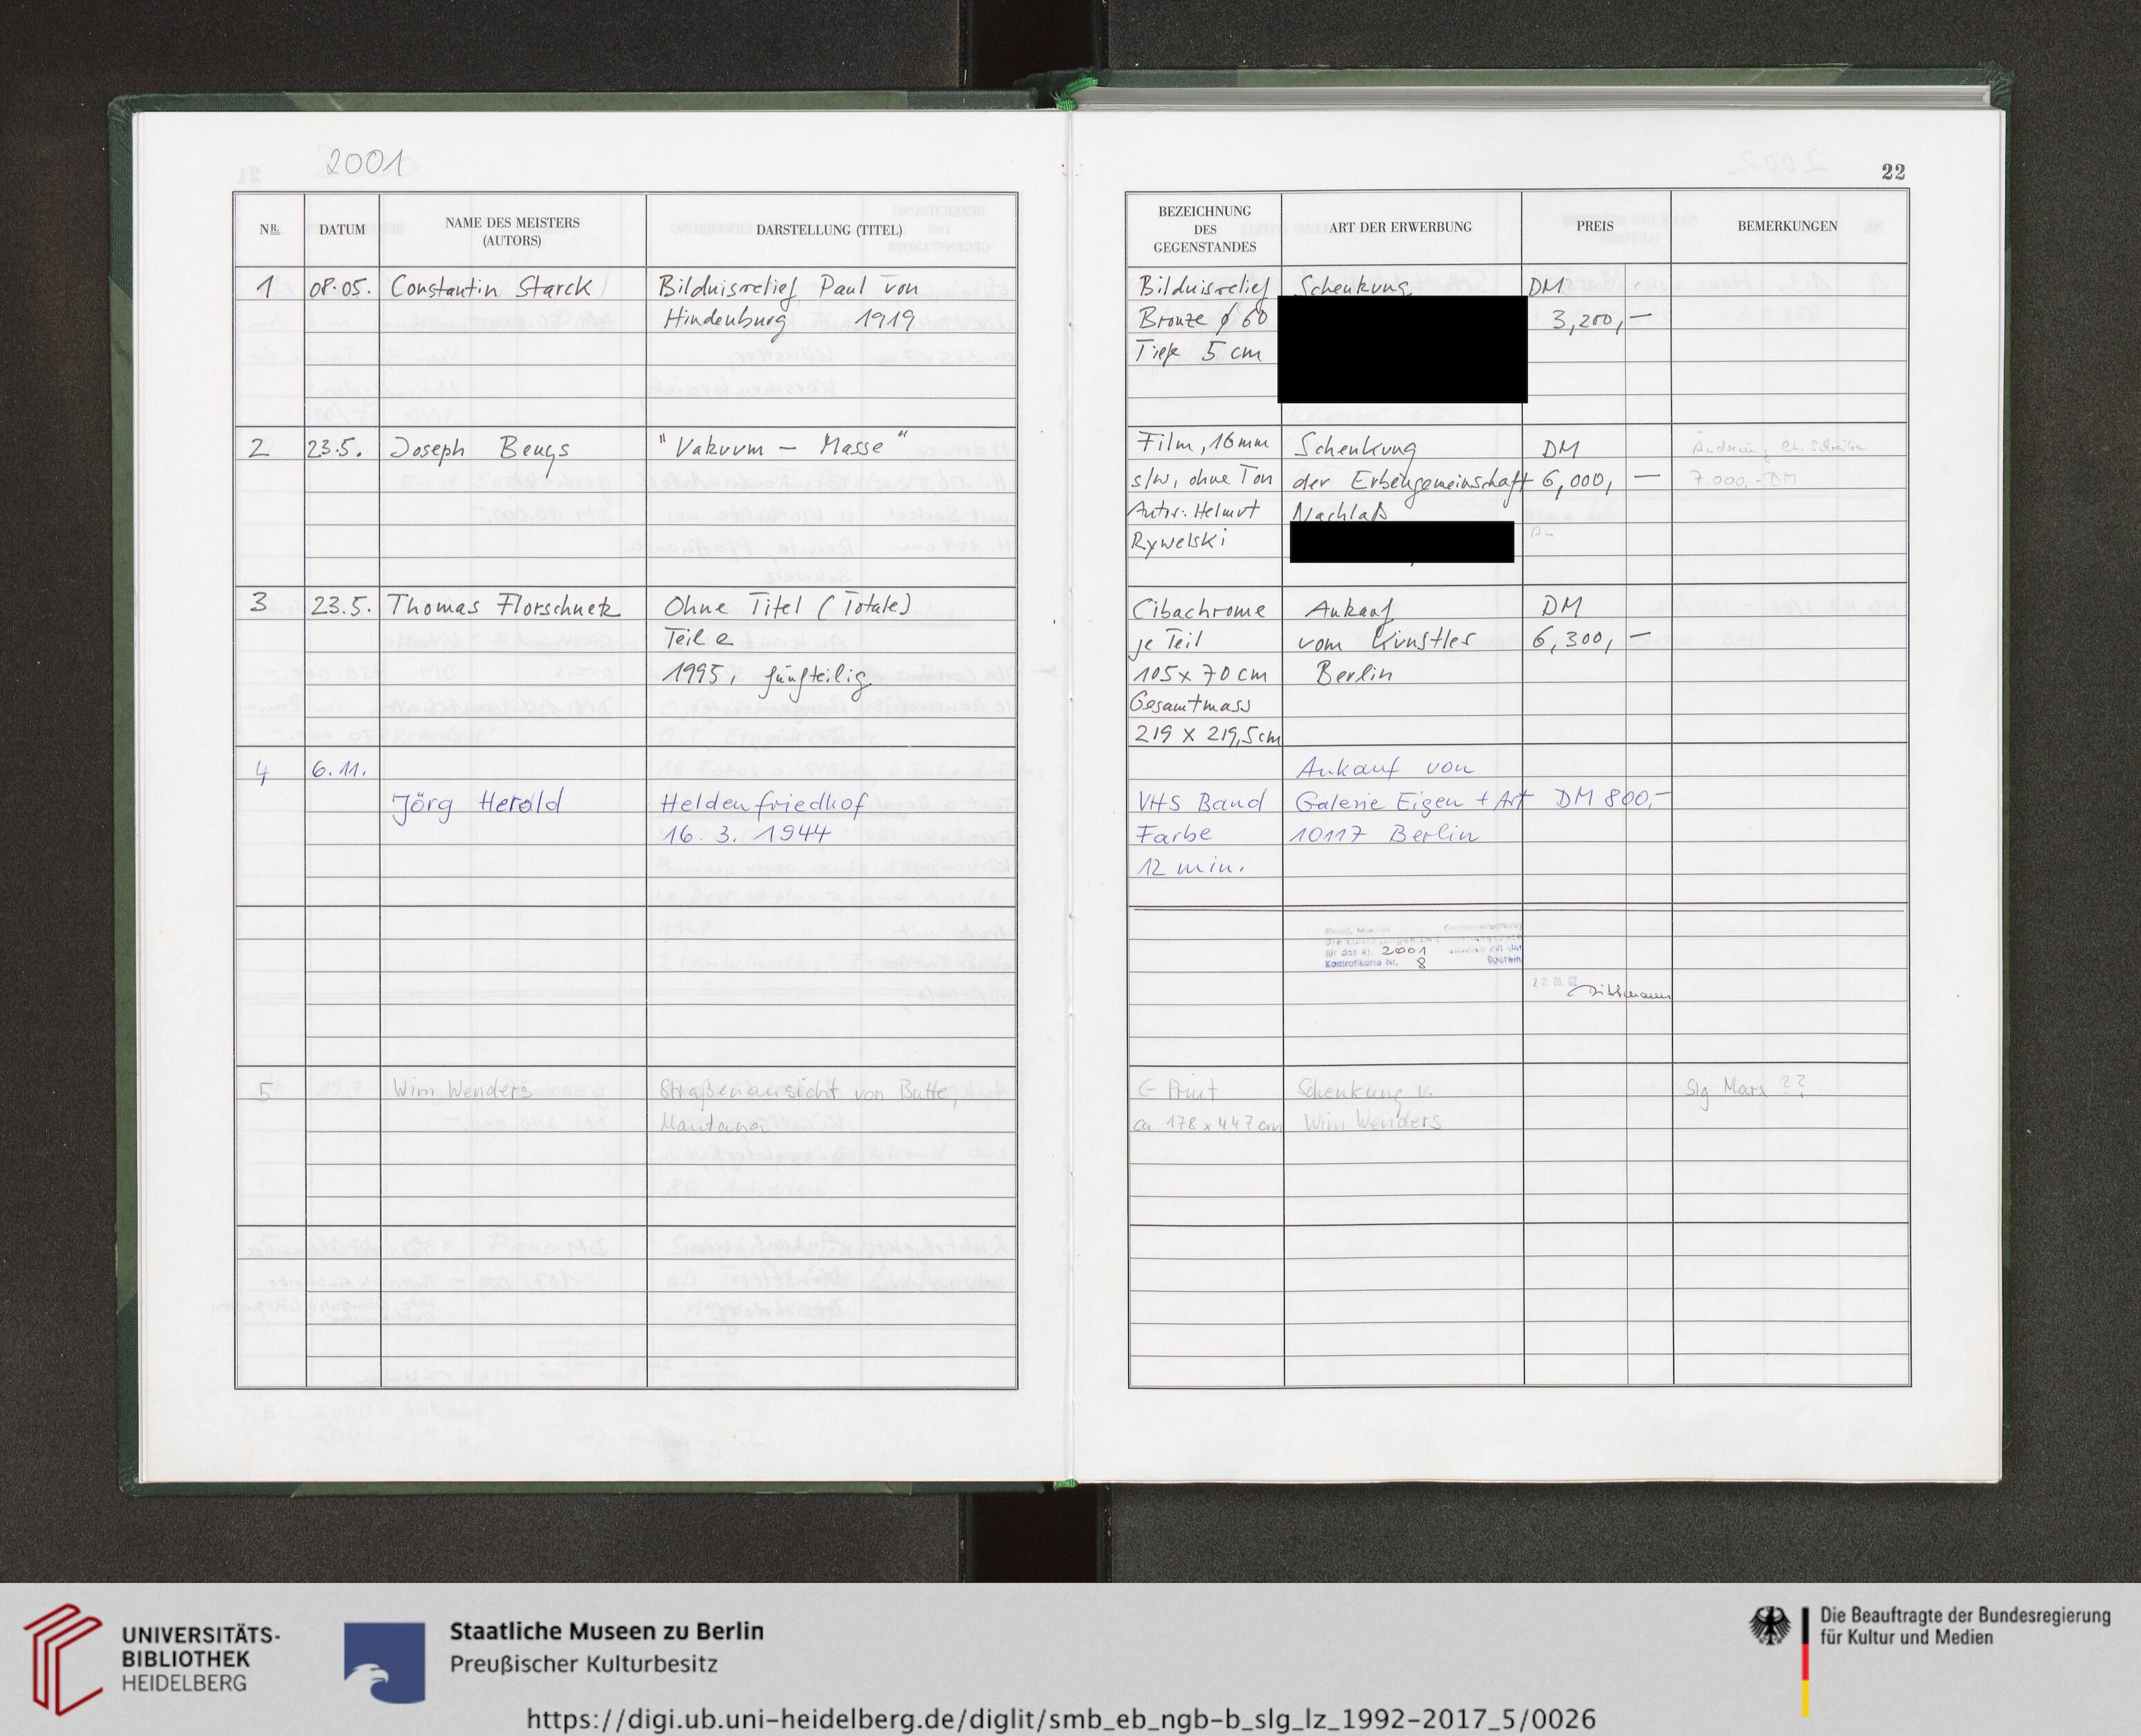 2001
22
NR.
DATUM
NAME DES MEISTERS
(AUTORS)
DARSTELLUNG (TITEL)
BEZEICHNUNG
DES
GEGENSTANDES
ART DER ERWERBUNG
PREIS
BEMERKUNGEN
1 08.05. Constantin Starck Bildnisrelief Paul von Bildnisrelief Schenkung DM
Hindenburg 1919 Bronze ∅ 60 3,200,—
Tiefe 5 cm
2 23.5. Joseph Beuys "Vakuum — Masse" Film, 16mm Schenkung DM
s/w, ohne Ton der Erbengemeinschaft 6,000,— 7.000,-DM
Autor: Helmut Nachlaß
Rywelski
3 23.5. Thomas Florschuetz Ohne Titel (Totale) Cibachrome Ankauf DM
Teil 2 je Teil vom Künstler 6,300,—
1995, fünfteilig 105 x 70 cm Berlin
Gesamtmass
219 x 219,5cm
4 6.11. Ankauf von
Jörg Herold Heldenfriedhof VHS Band Galerie Eigen + Art DM 800,-
16. 3. 1944 Farbe 10117 Berlin
12 min.
für das Rj. 2001
Kontrollkarte Nr. 8
5 Wim Wenders Straßenansicht von Butte, C Print Schenkung v. Slg Marx ??
Montana ca 178 x 447 cm Wim Wenders
UNIVERSITÄTS-
BIBLIOTHEK
HEIDELBERG
Staatliche Museen zu Berlin
Preußischer Kulturbesitz
Die Beauftragte der Bundesregierung
für Kultur und Medien
https://digi.ub.uni-heidelberg.de/diglit/smb_eb_ngb-b_slg_lz_1992-2017_5/0026